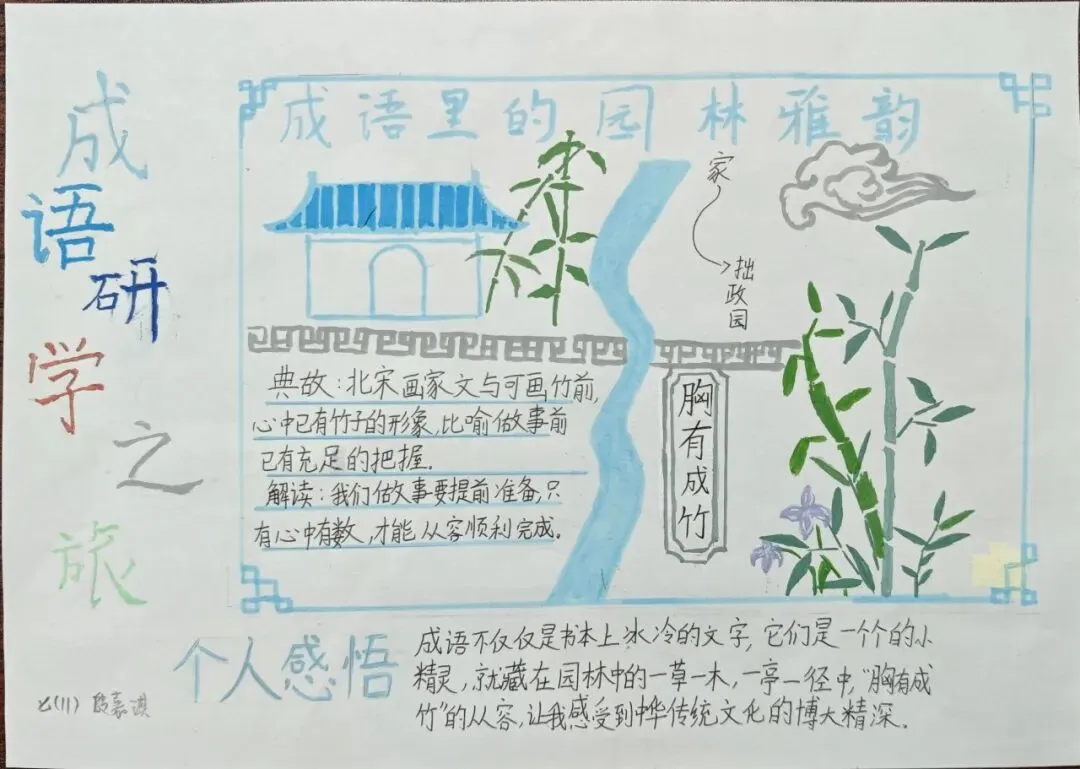 成语研学之旅
成语里的园林雅韵
家
拙政园
典故：北宋画家文与可画竹前，
心中已有竹子的形象，比喻做事前
已有充足的把握．
解读：我们做事要提前准备，只
有心中有数，才能从容顺利完成．
胸有成竹
个人感悟
成语不仅仅是书本上冰冷的文字，它们是一个个的小
精灵，就藏在园林中的一草一木，一亭一径中，"胸有成
竹"的从容，让我感受到中华传统文化的博大精深．
七(11)